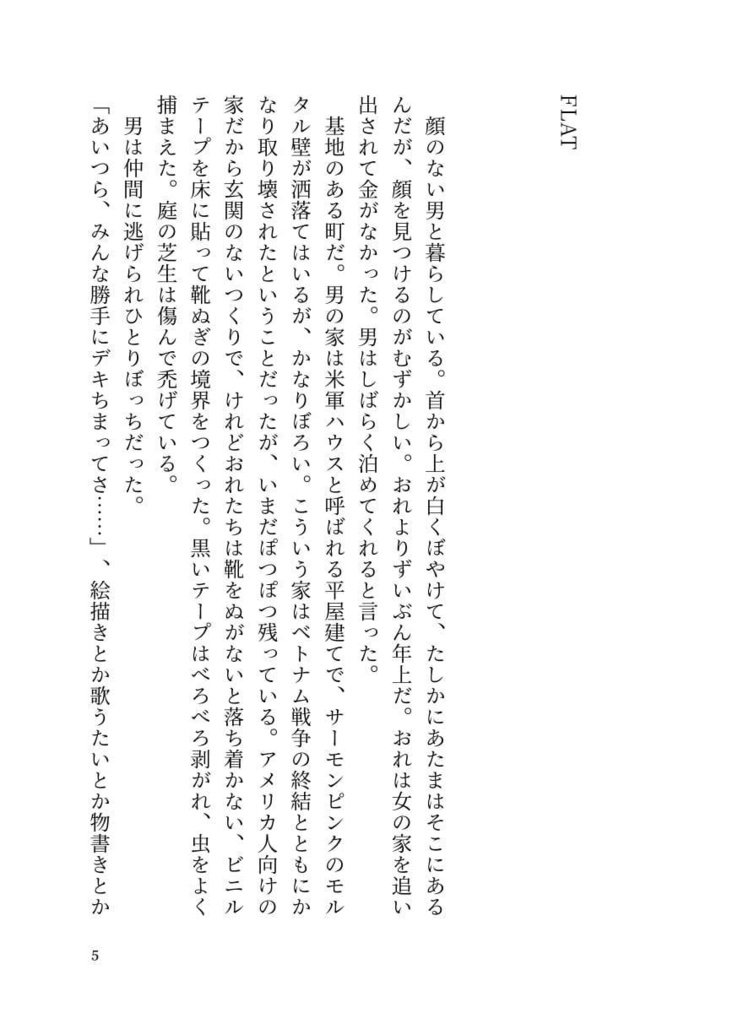 FLAT
顔のない男と暮らしている。首から上が白くぼやけて、たしかにあたまはそこにある
んだが、顔を見つけるのがむずかしい。おれよりずいぶん年上だ。おれは女の家を追い
出されて金がなかった。男はしばらく泊めてくれると言った。
基地のある町だ。男の家は米軍ハウスと呼ばれる平屋建てで、サーモンピンクのモル
タル壁が洒落てはいるが、かなりぼろい。こういう家はベトナム戦争の終結とともにか
なり取り壊されたということだったが、いまだぽつぽつ残っている。アメリカ人向けの
家だから玄関のないつくりで、けれどおれたちは靴をぬがないと落ち着かない、ビニル
テープを床に貼って靴ぬぎの境界をつくった。黒いテープはべろべろ剥がれ、虫をよく
捕まえた。庭の芝生は傷んで禿げている。
男は仲間に逃げられひとりぼっちだった。
「あいつら、みんな勝手にデキちまってさ……」、絵描きとか歌うたいとか物書きとか
5